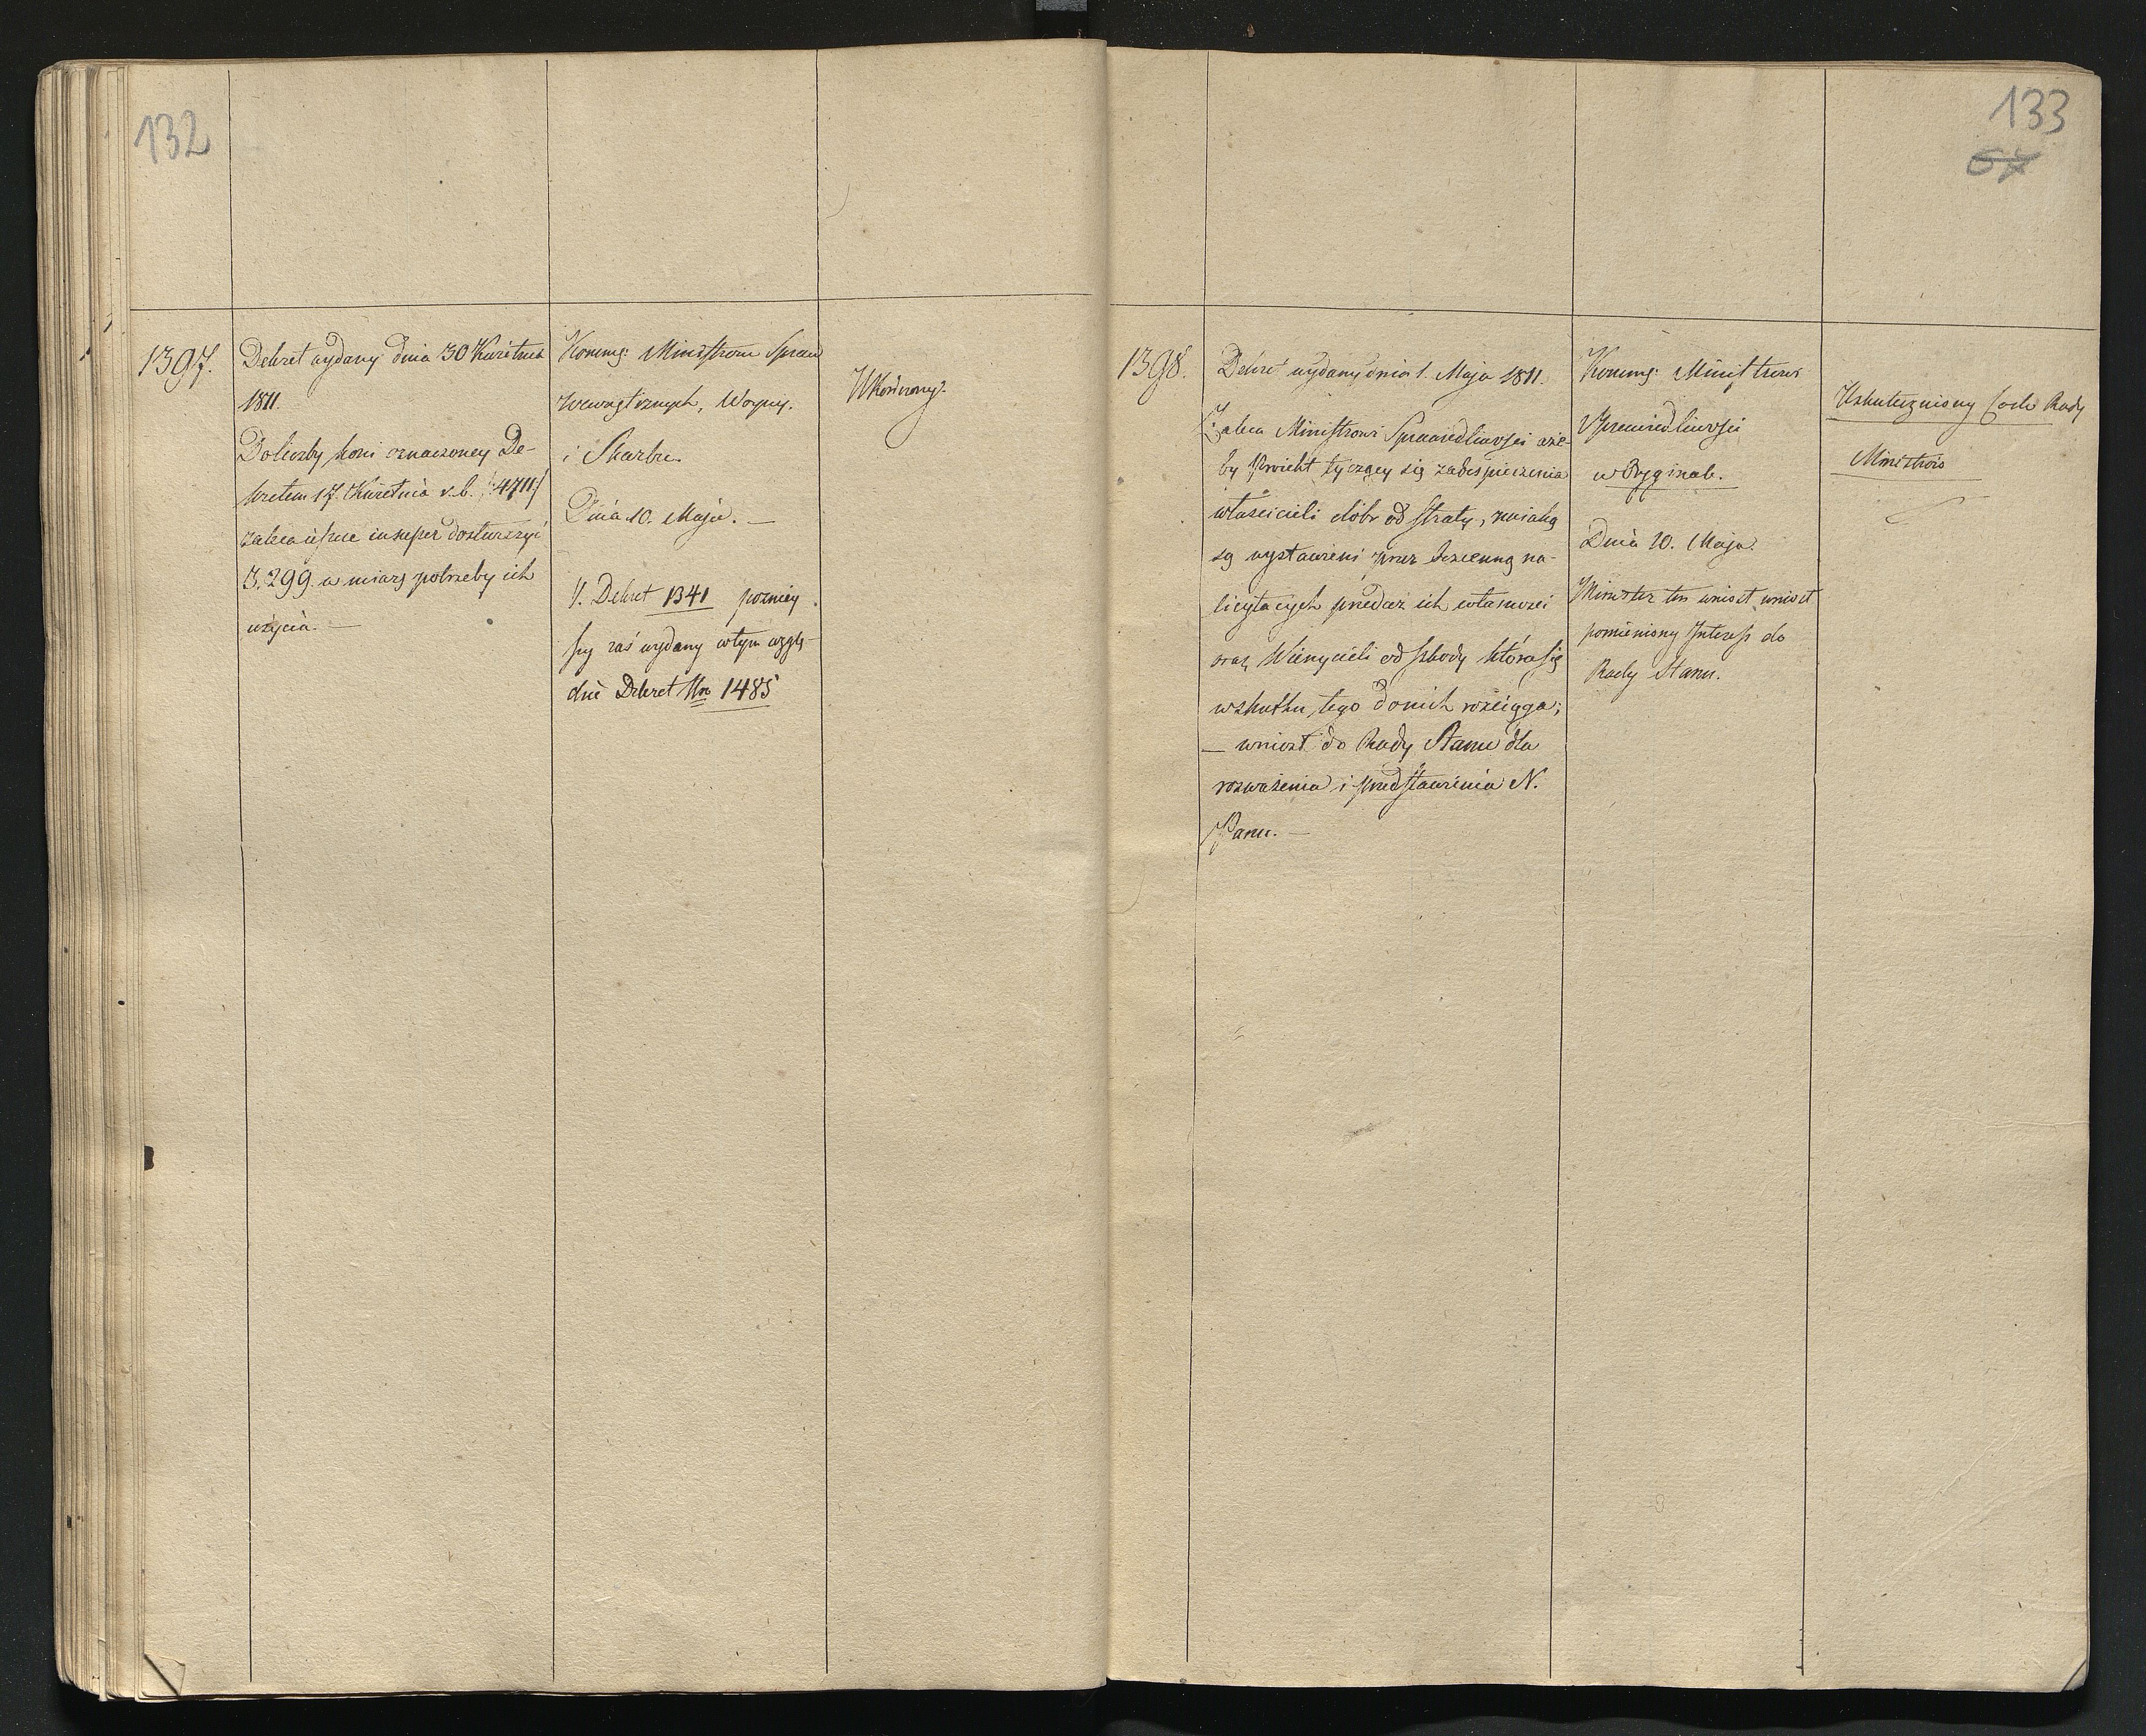 132
1397.
Dekret wydany dnia 30 Kwietnia
1811.
Do liczby koni oznaczoney De-
kretem 17. Kwietnia r. b. /:4711:/
zaleca insuper dostarczyć
3.299. w miarę potrzeby ich
użycia. —
Kommg: Ministrom Spraw
wewnętrznych, Woyny.
i Skarbu.
Dnia 10. Maja. —
V. Dekret 1341 pozniey
szy zaś wydany w tym wzglę-
dnie Dekret Nro 1485
Wkończony.
133
67
1398.
Dekret wydany dnia 1. Maja 1811.
Zaleca Ministrowi Sprawiedliwości aże-
by Proiekt tyczący się zabespieczenia
właścicieli dóbr od straty, na iaką
są wystawieni przez bezcenną na
licytacyach przedaż ich własności
oraz Wierzycieli od szkody która się
w skutku tego do nich rozciąga;
— wniosł do Rady Stanu dla
rozważenia i przedstawienia N.
Panu. —
Kommg: Ministrowi
Sprawiedliwości
w Orginale.
Dnia 10. Maja.
Minister ten wniosł wniosł
pomieniony Interess do
Rady Stanu.
Uskuteczniony (ode Rady
Ministrów